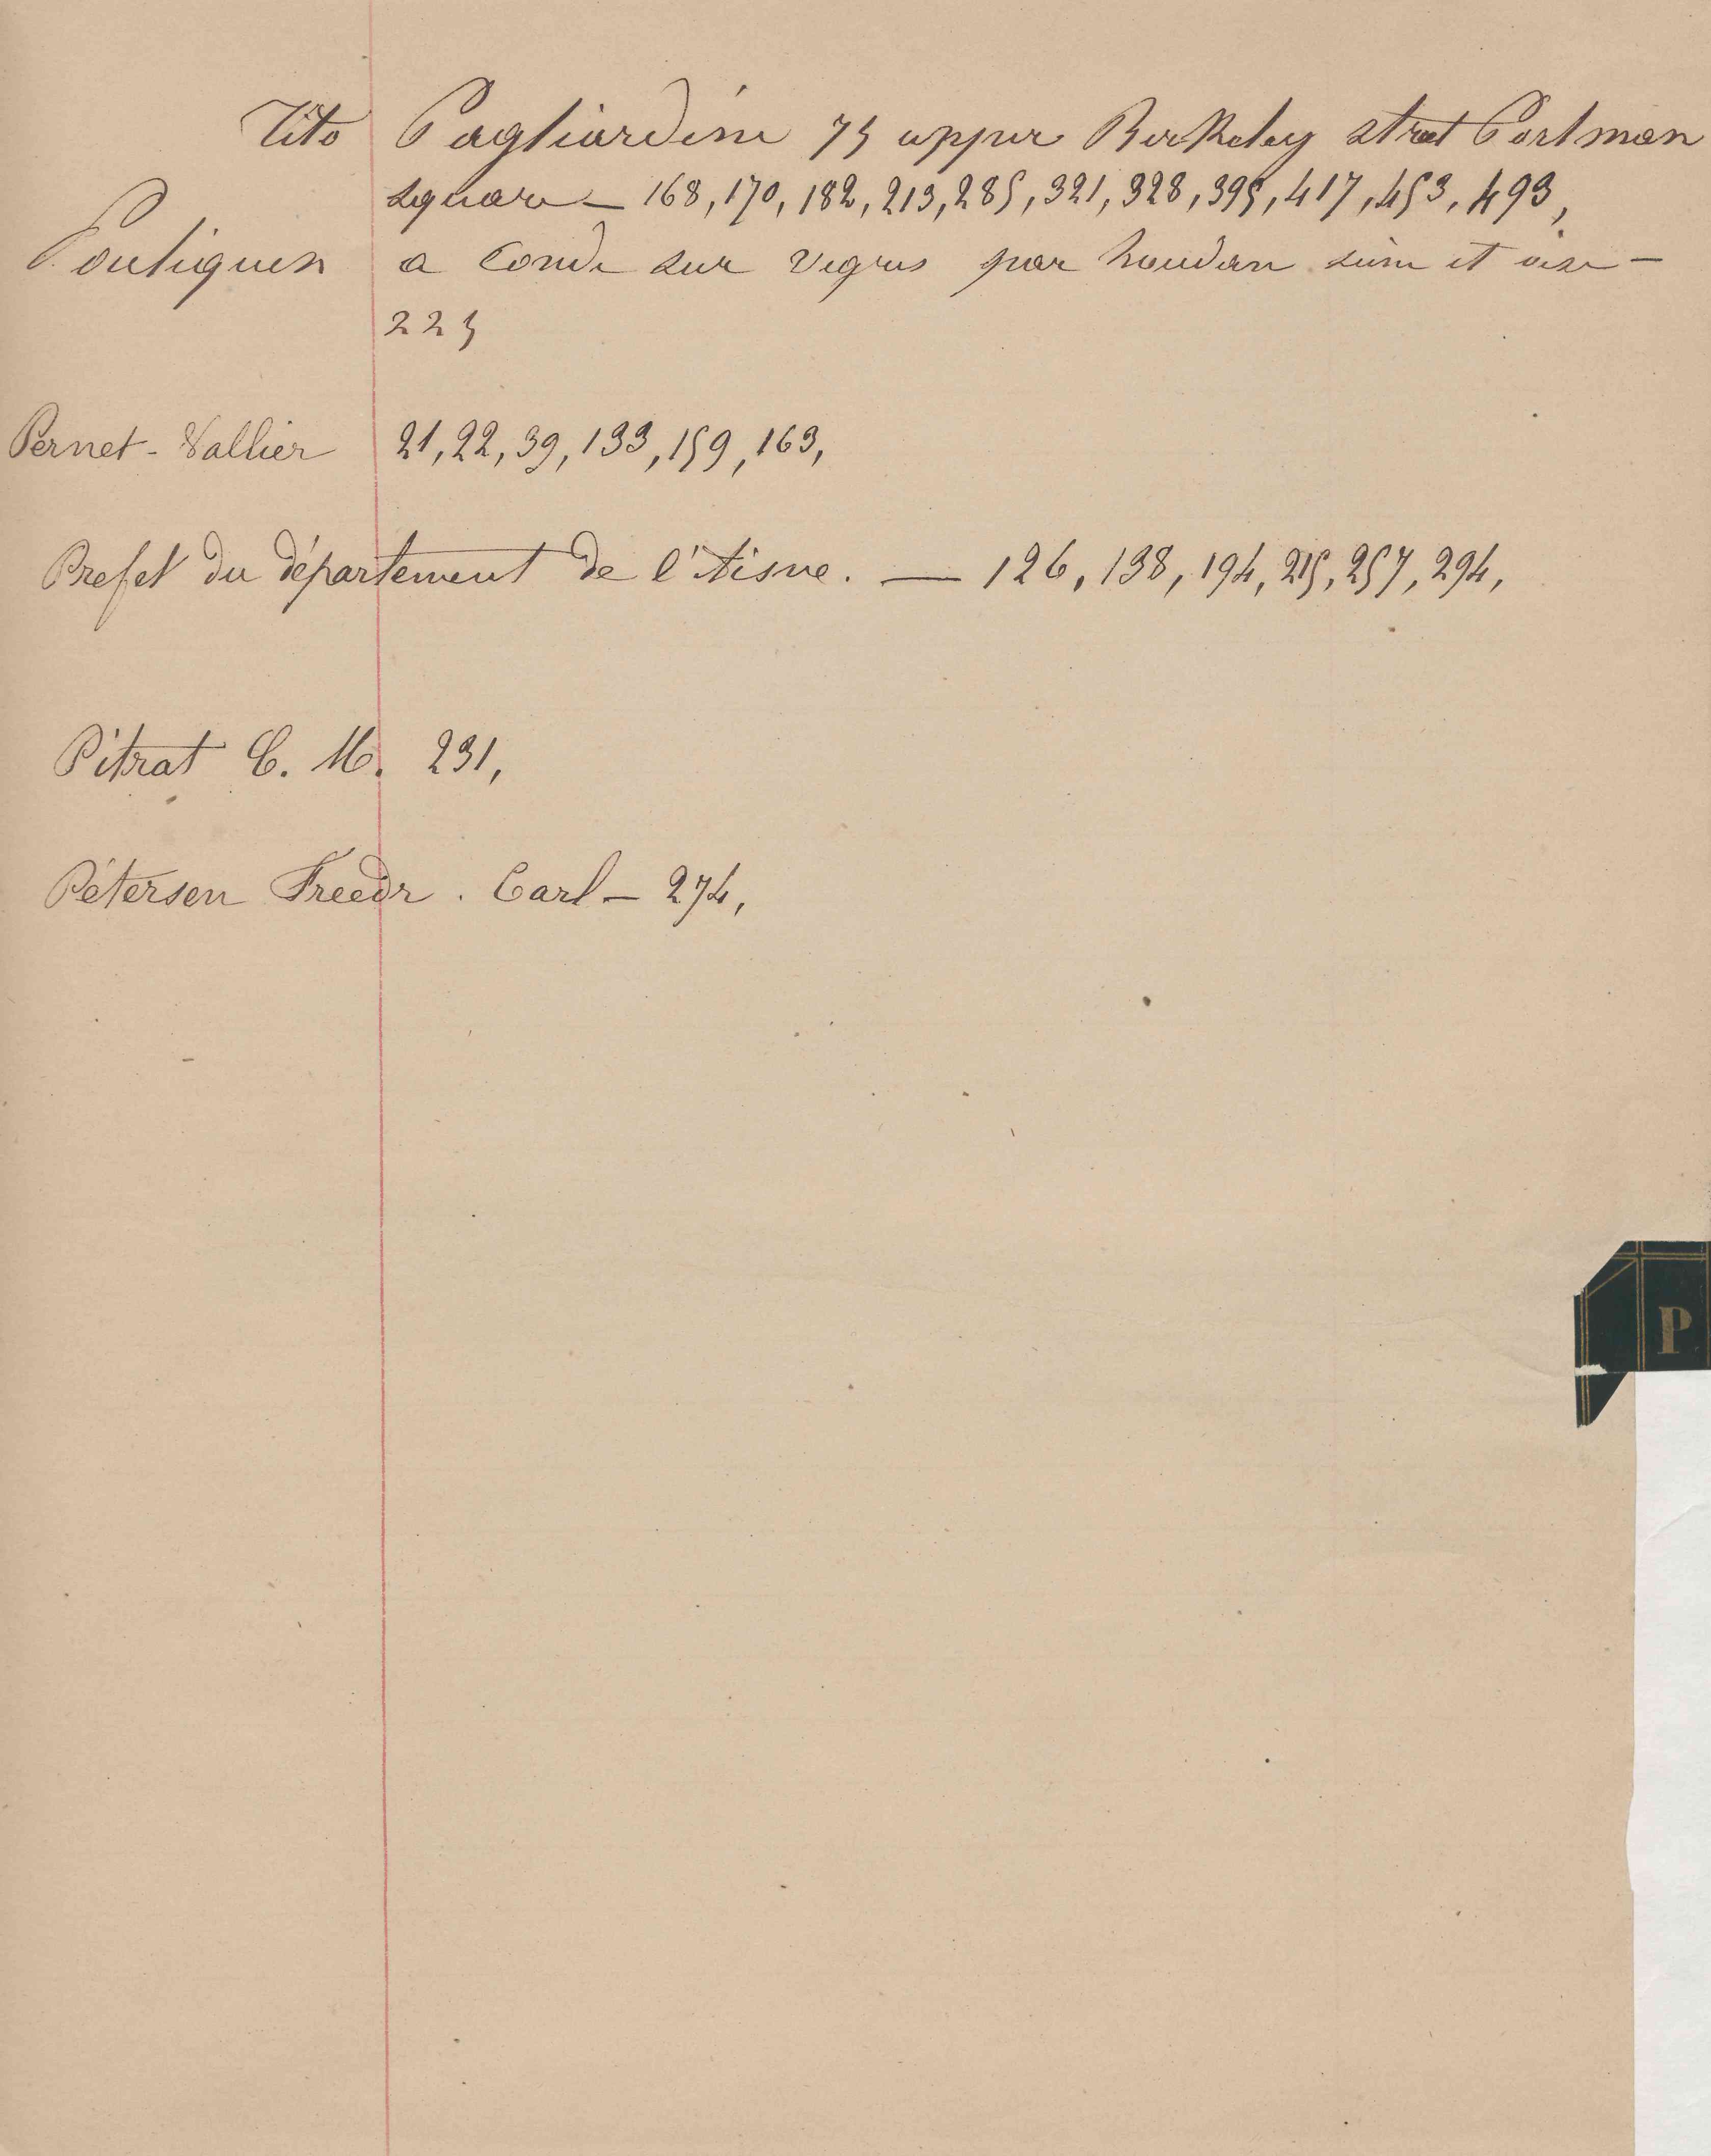 Tito Pagliardini 75 upper Berkeley street Portman
square — 168, 170, 182, 213, 285, 321, 328, 395, 417, 453, 493,
Poutiquen a Condé sur Vegres par houdan seine et oise —
225
Pernet-Vallier 21, 22, 39, 133, 159, 163,
Prefet du département de l'Aisne. — 126, 138, 194, 215, 257, 294,
Pitrat C. M. 231,
Pétersen Freedr. Carl — 274,
P